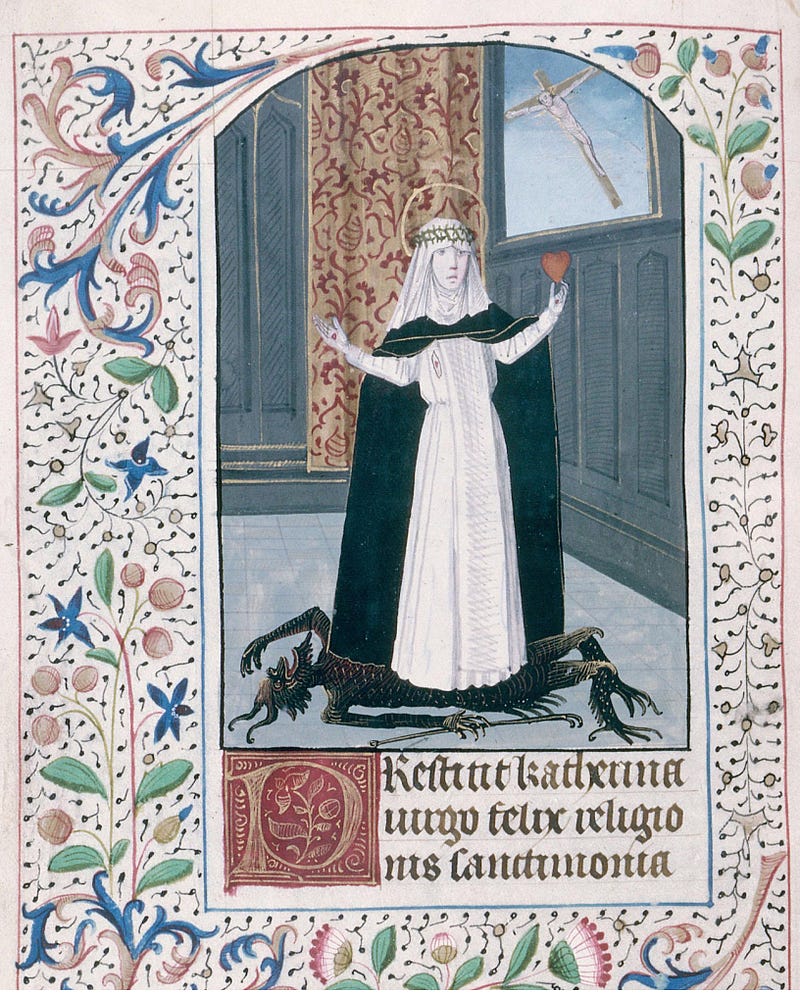 PRestitit katherina
uirgo felix religio
nis sanctimonia